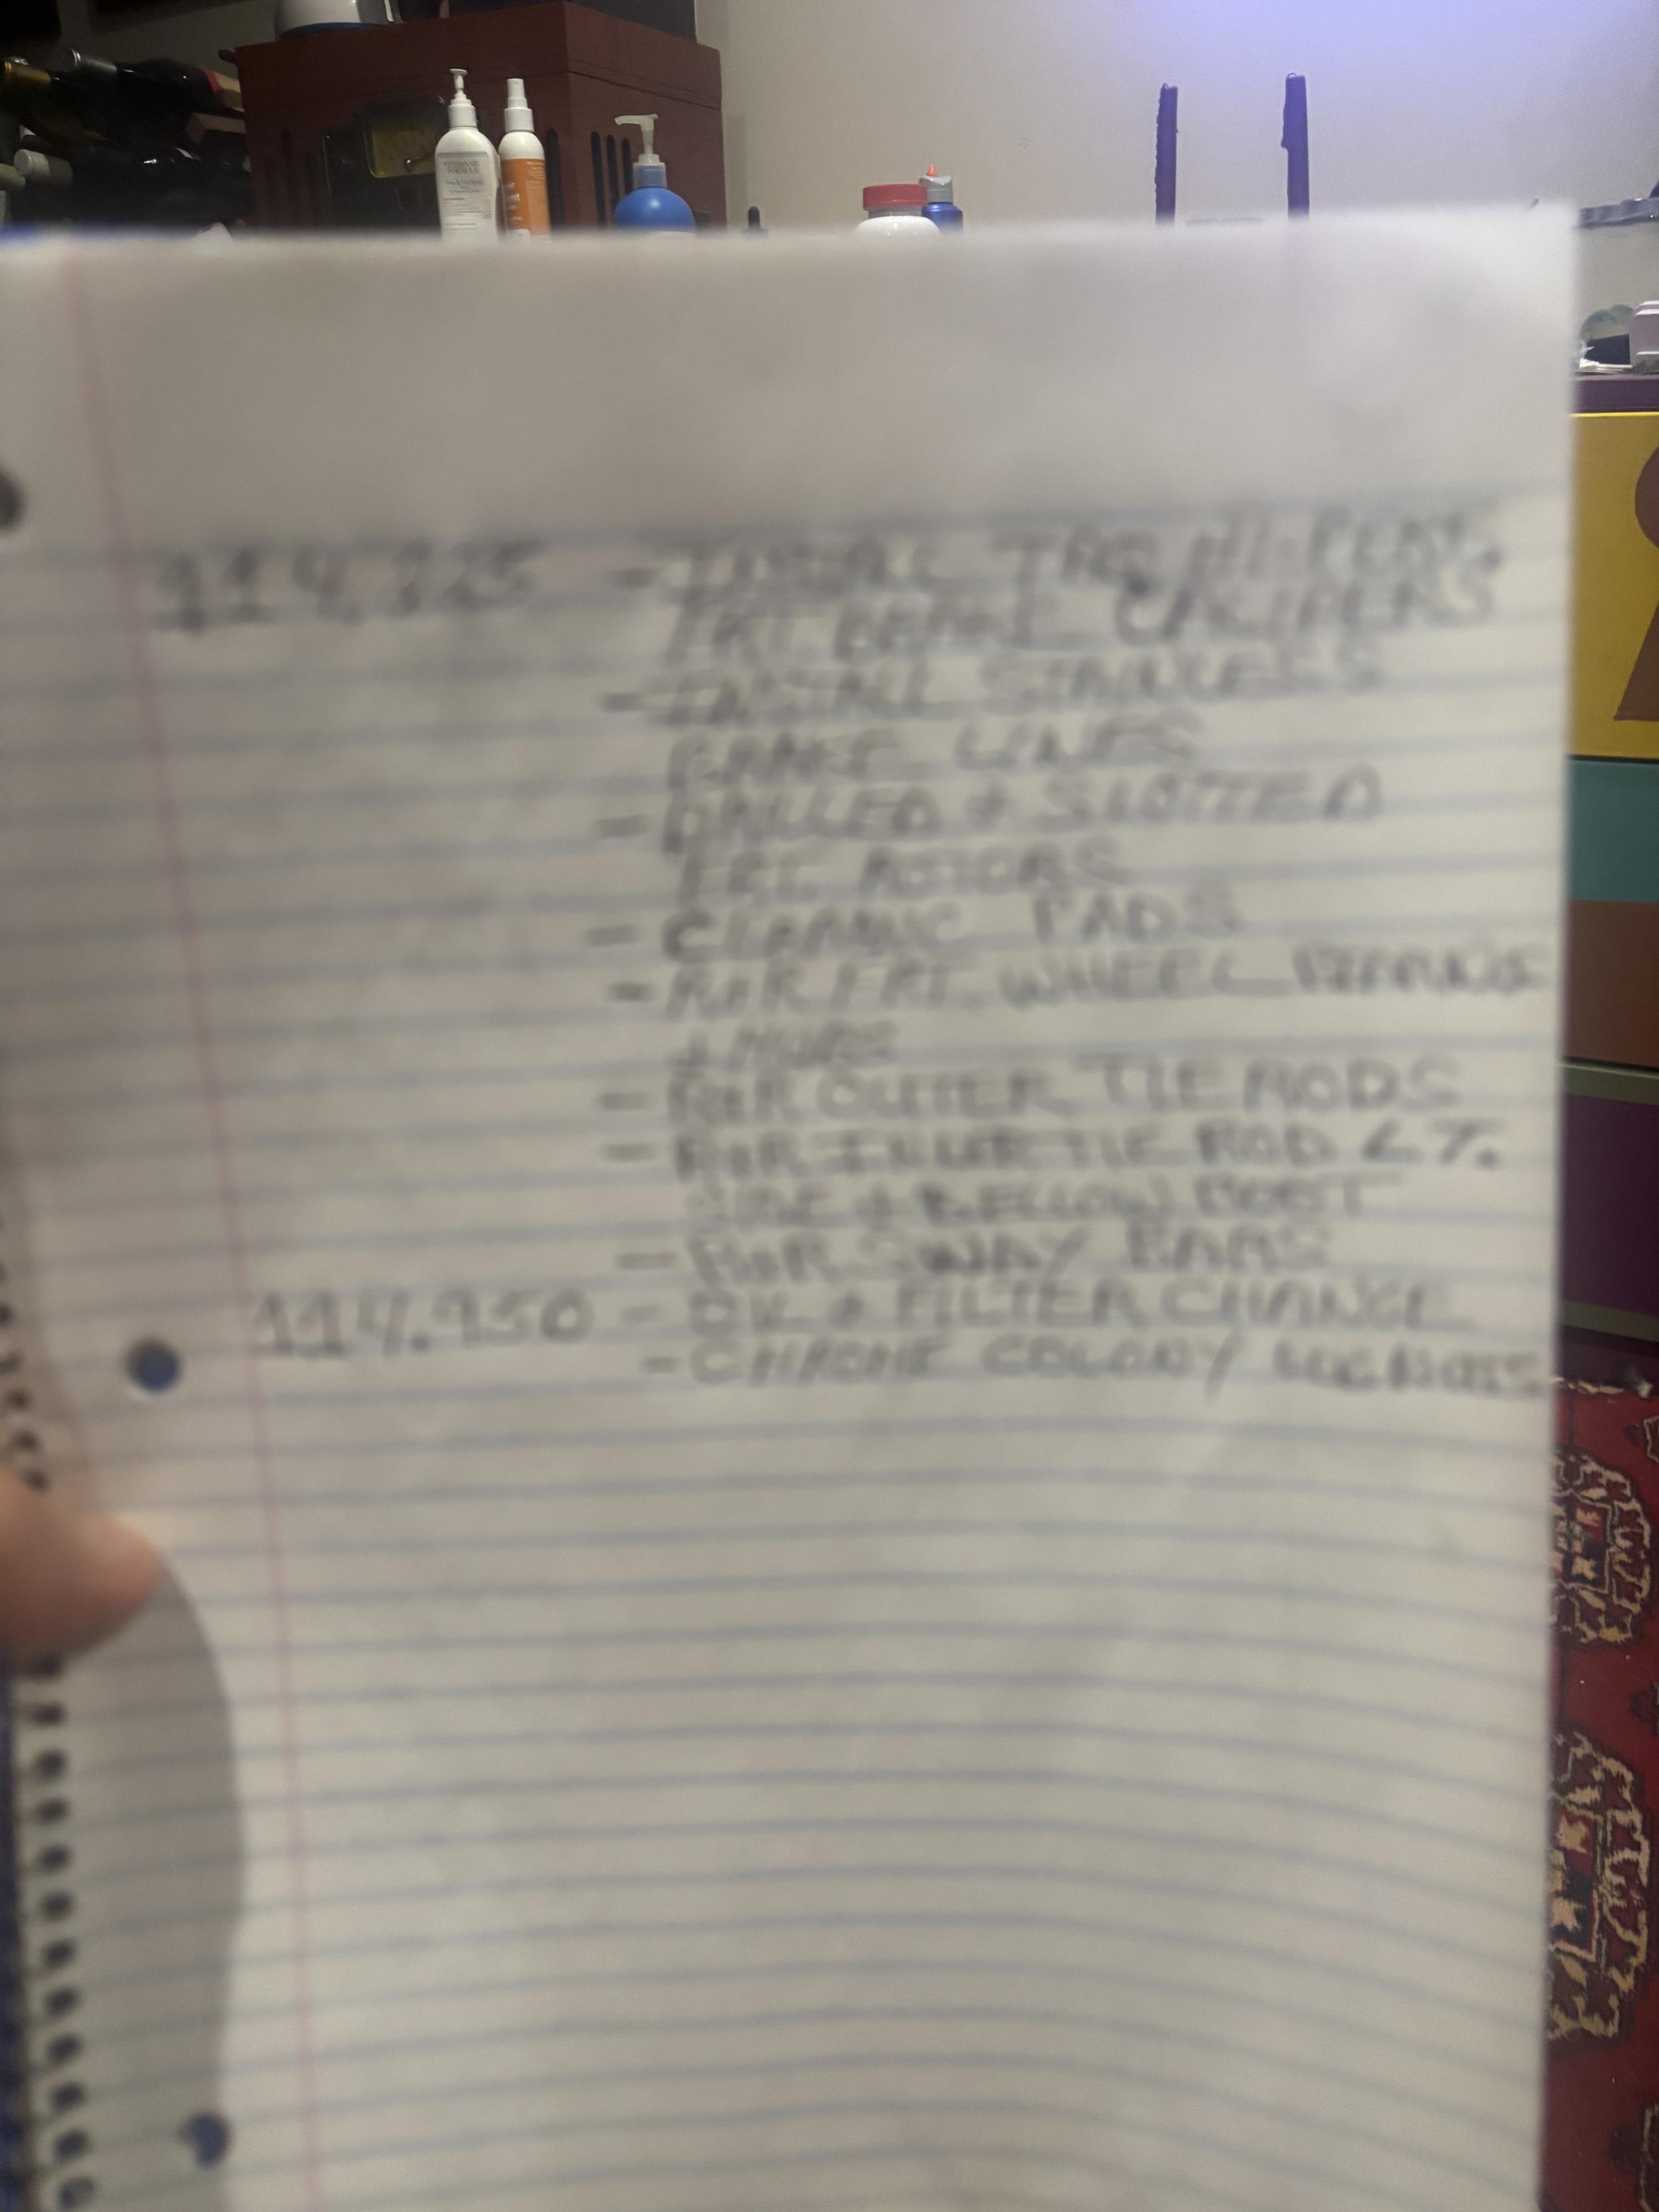 - INSTALL TRD HI-PERF.
FRT. BRAKE CALIPERS
- INSTALL STAINLESS
BRAKE LINES
- DRILLED & SLOTTED
FRT. ROTORS
- CERAMIC PADS
- R&R FRT. WHEEL BEARINGS
- R&R OUTER TIE RODS
- R&R INNER TIE ROD LT.
SIDE & BELLOW BOOT
- R&R SWAY BARS
114,950 - OIL & FILTER CHANGE
- CHROME COLONY LUGNUTS